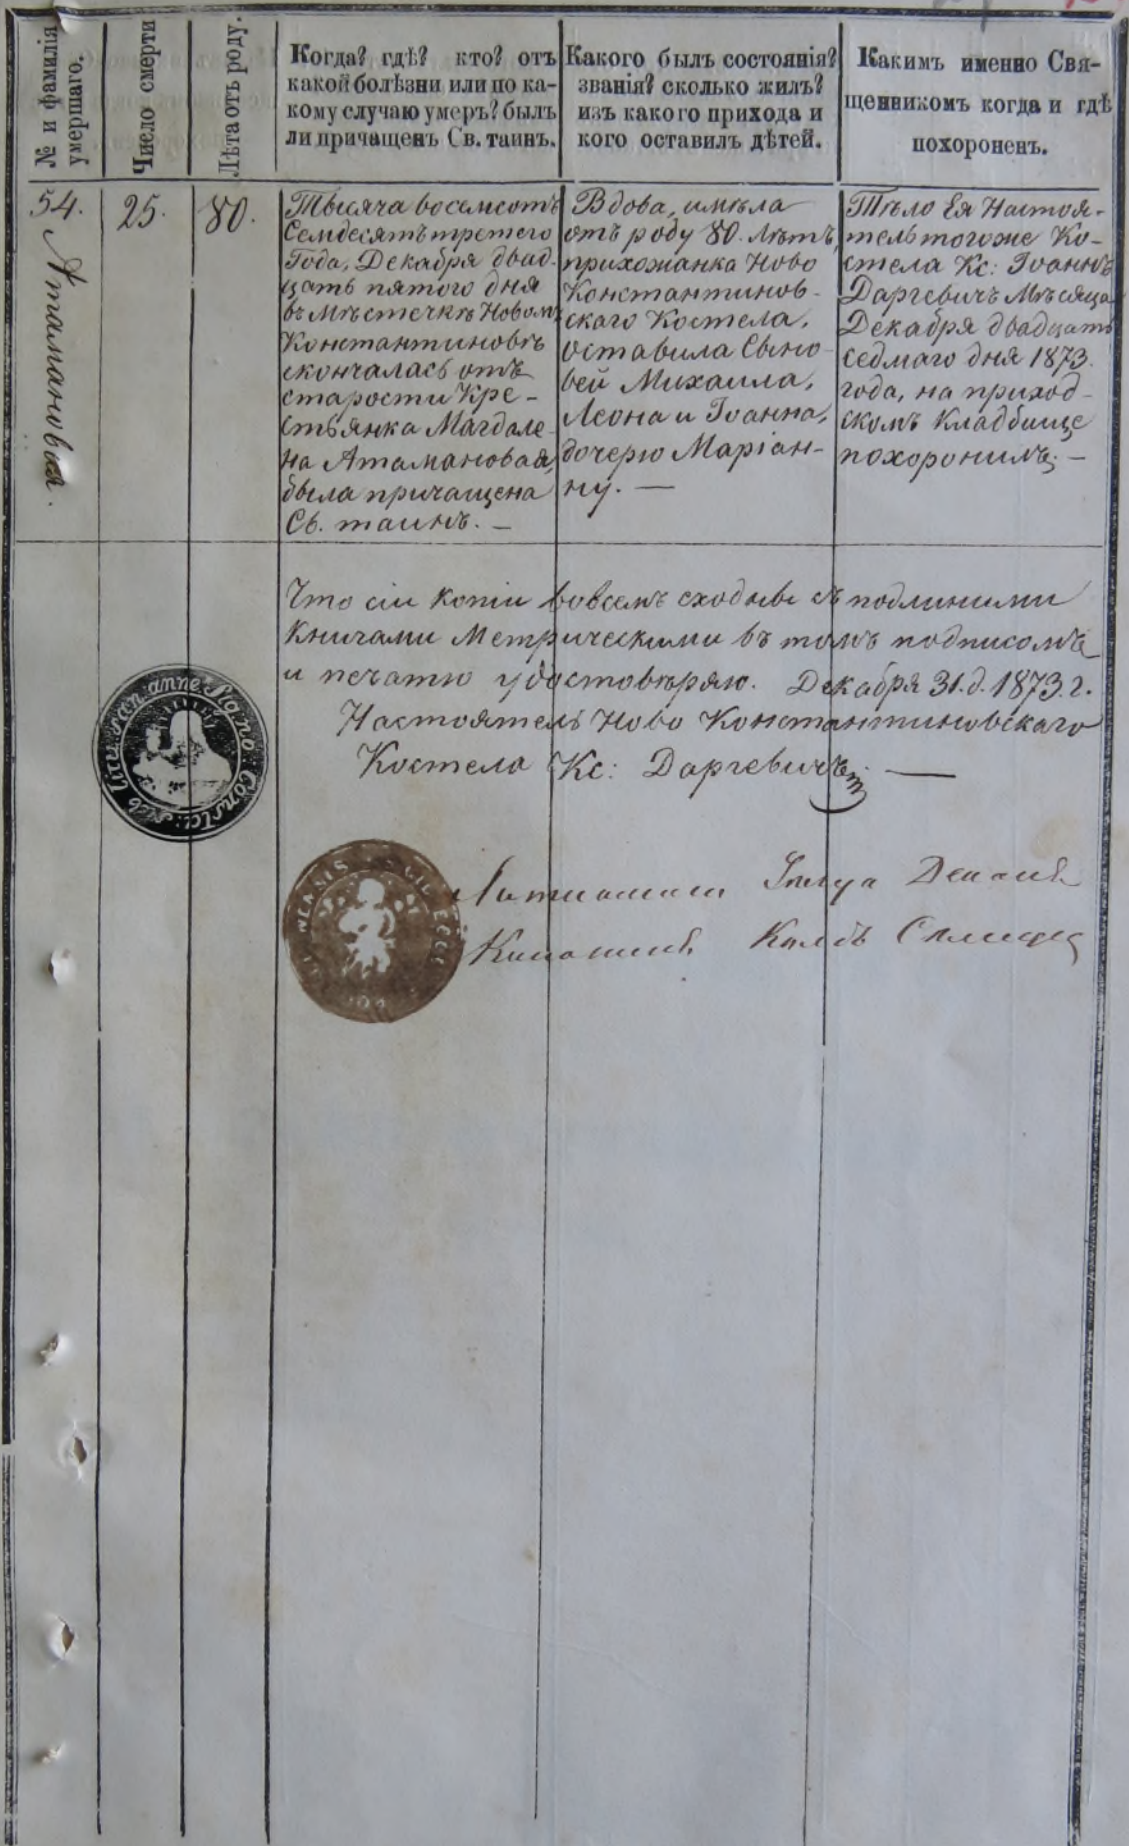 № и фамилія
умершаго.
Число смерти
Лѣта отъ роду.
Когда? гдѣ? кто? отъ
какой болѣзни или по ка-
кому случаю умеръ? былъ
ли причащенъ Св. таинъ.
Какого былъ состоянія?
званія? сколько жилъ?
изъ какого прихода и
кого оставилъ дѣтей.
Какимъ именно Свя-
щенникомъ когда и гдѣ
похороненъ.
54.
Атамановая.
25.
80.
Тысяча восемсотъ
Семдесятъ третего
Года, Декабря двад-
цать пятого дня
въ Мѣстечкѣ Новом
Константиновѣ
скончалась отъ
старости Кре-
стьянка Магдале-
на Атамановая,
была причащена
Св. таинъ. —
Вдова, имѣла
отъ роду 80. Лѣтъ,
прихожанка Ново
Константинов-
скаго Костела,
оставила Сыно-
вей Михаила,
Леона и Іоанна,
дочерю Маріан-
ну. —
Тѣло Ея Настоя-
тель тогоже Ко-
стела Кс: Іоаннъ
Даргевичъ Мѣсяца
Декабря двадцать
седмаго дня 1873.
года, на приход-
скомъ Кладбище
похоронилъ. —
Что сіи копіи вовсемъ сходны съ подлинными
Книгами Метрическими въ томъ подписомъ
и печатю удостовѣряю. Декабря 31. д. 1873. г.
Настоятель Ново Константиновскаго
Костела Кс: Даргевичъ —
Деканъ
Каноникъ